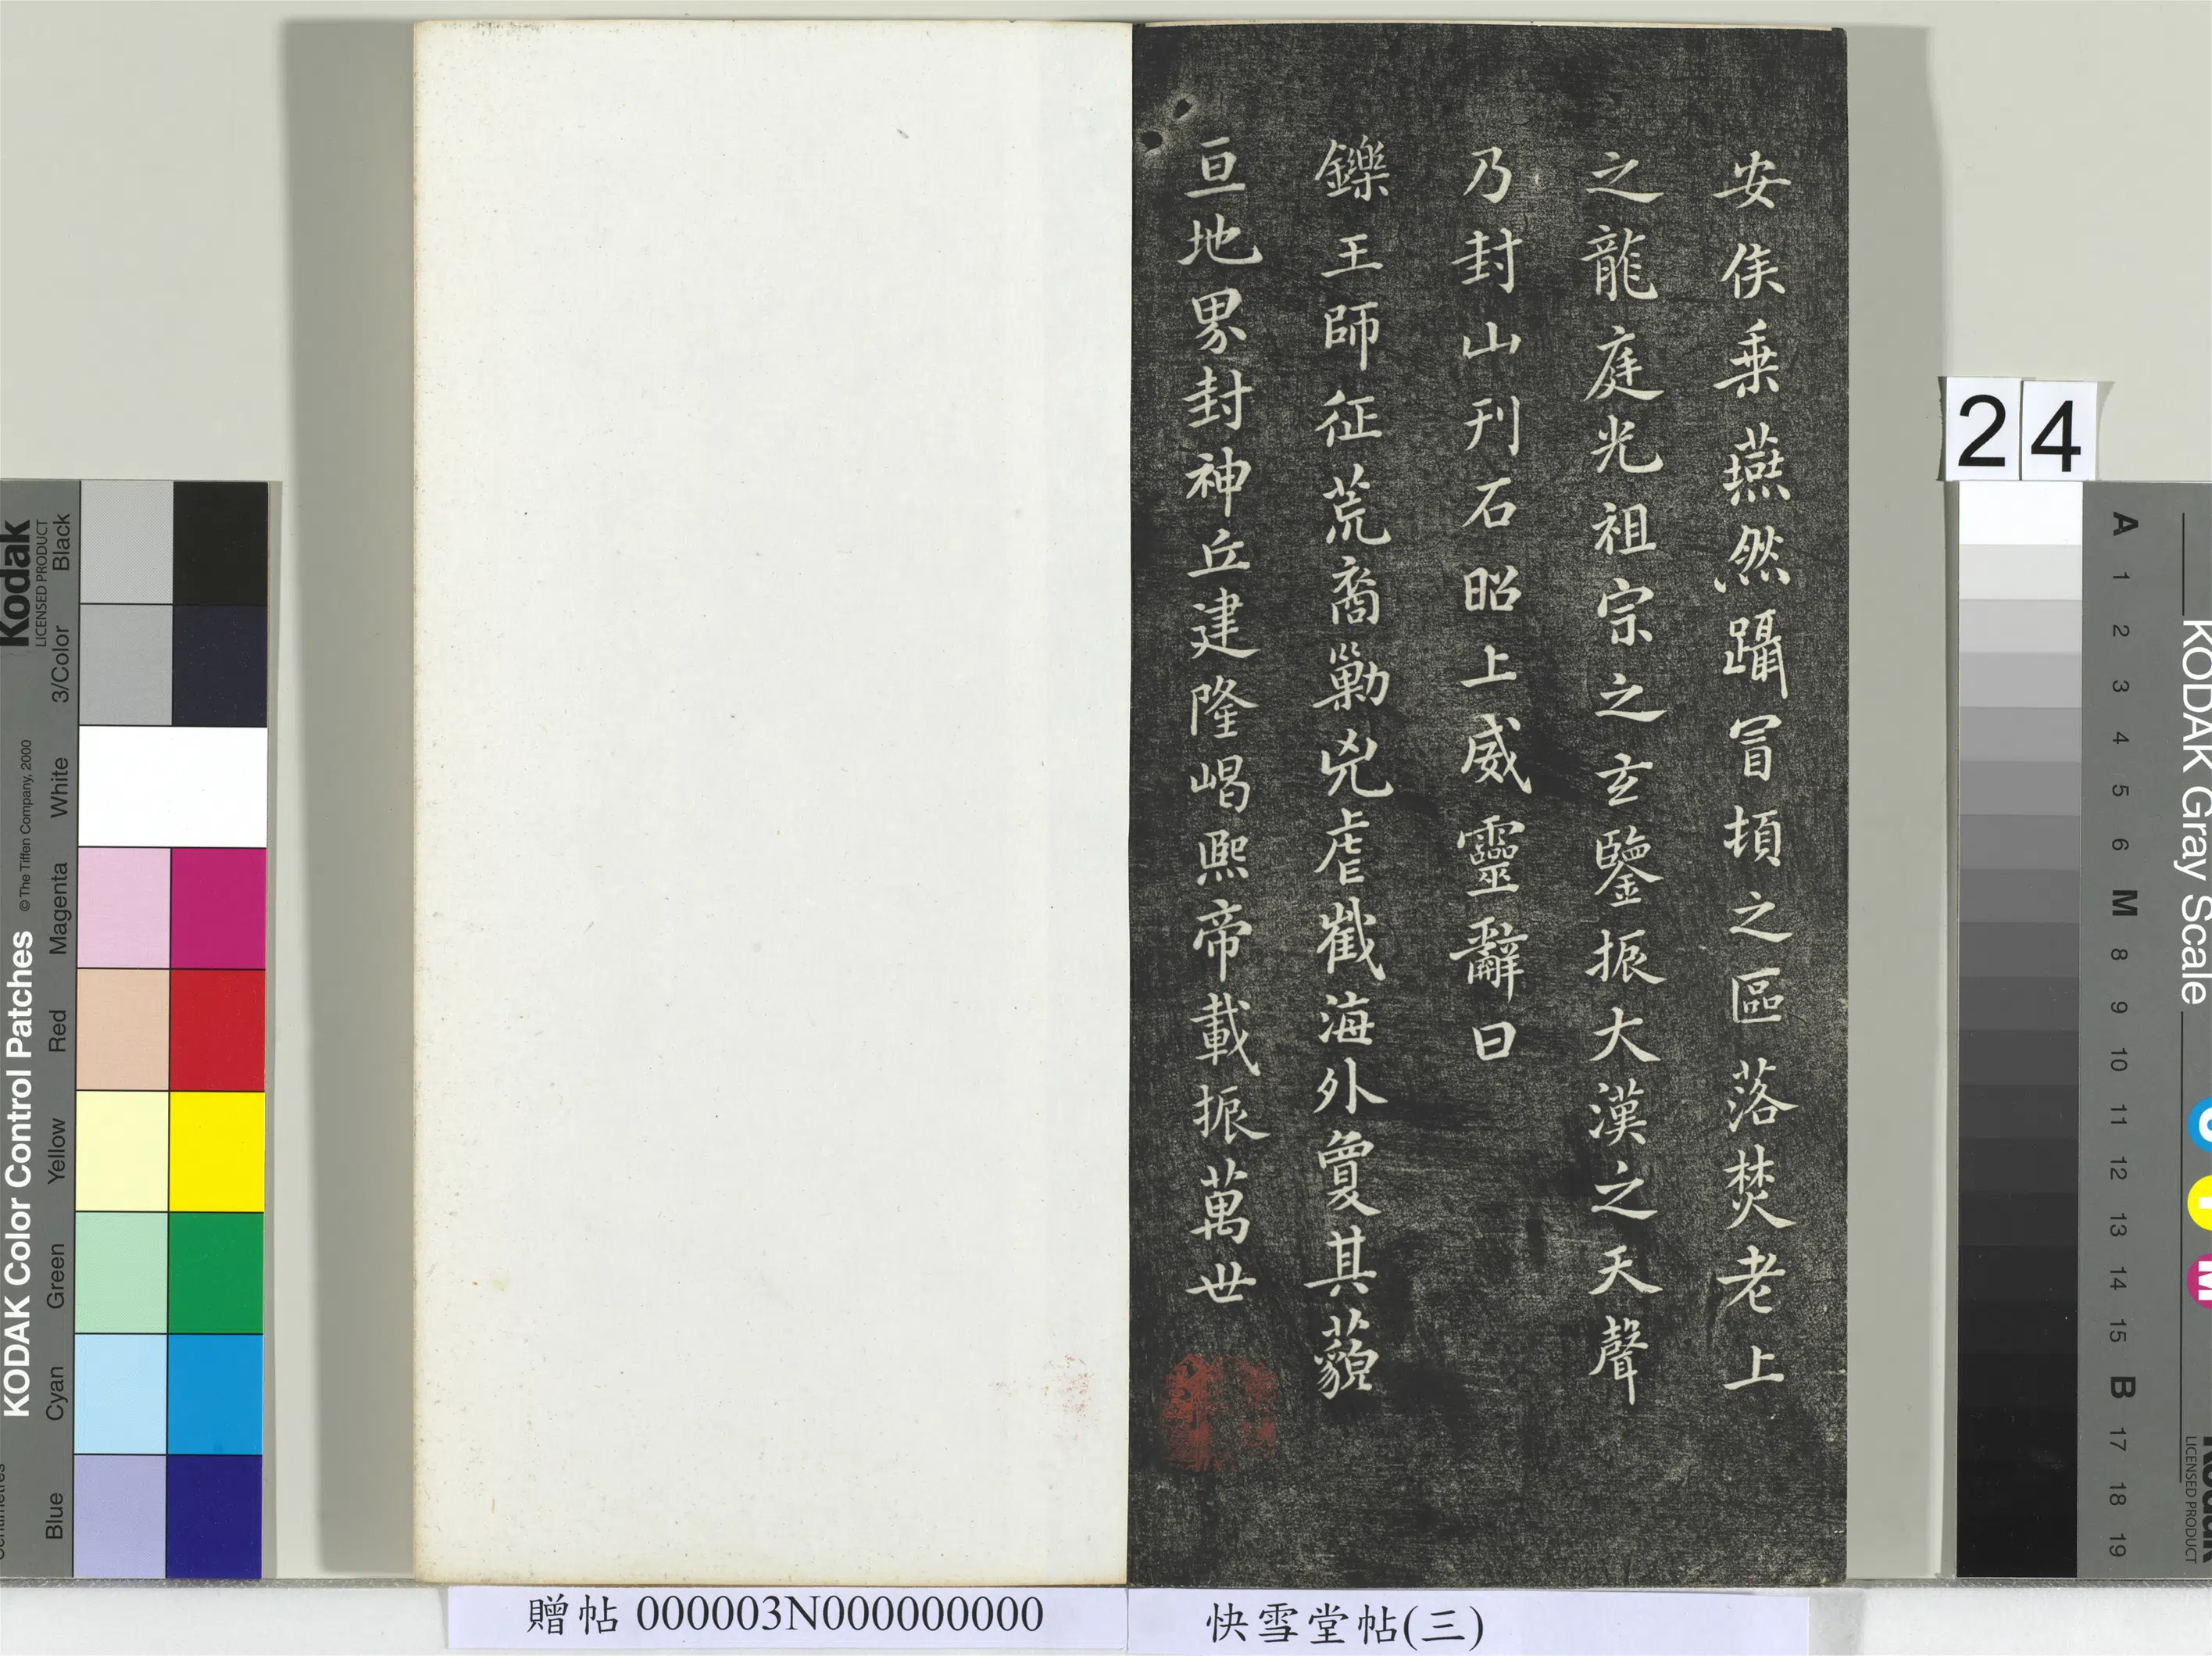 安侯乗燕然躡冒頓之區落焚老上
之龍庭光祖宗之玄鑒振大漢之天聲
乃封山刊石昭上威靈辭曰
鑠王師征荒裔勦兇虐截海外夐其藐
亘地界封神丘建隆嵑熙帝載振萬世
贈帖 000003N000000000
快雪堂帖(三)
24
Kodak
LICENSED PRODUCT
KODAK Color Control Patches
© The Tiffen Company, 2000
Black
3/Color
White
Magenta
Red
Yellow
Green
Cyan
Blue
KODAK Gray Scale
A 1 2 3 4 5 6 M 8 9 10 11 12 13 14 15 B 17 18 19
C
Y
M
LICENSED PRODUCT